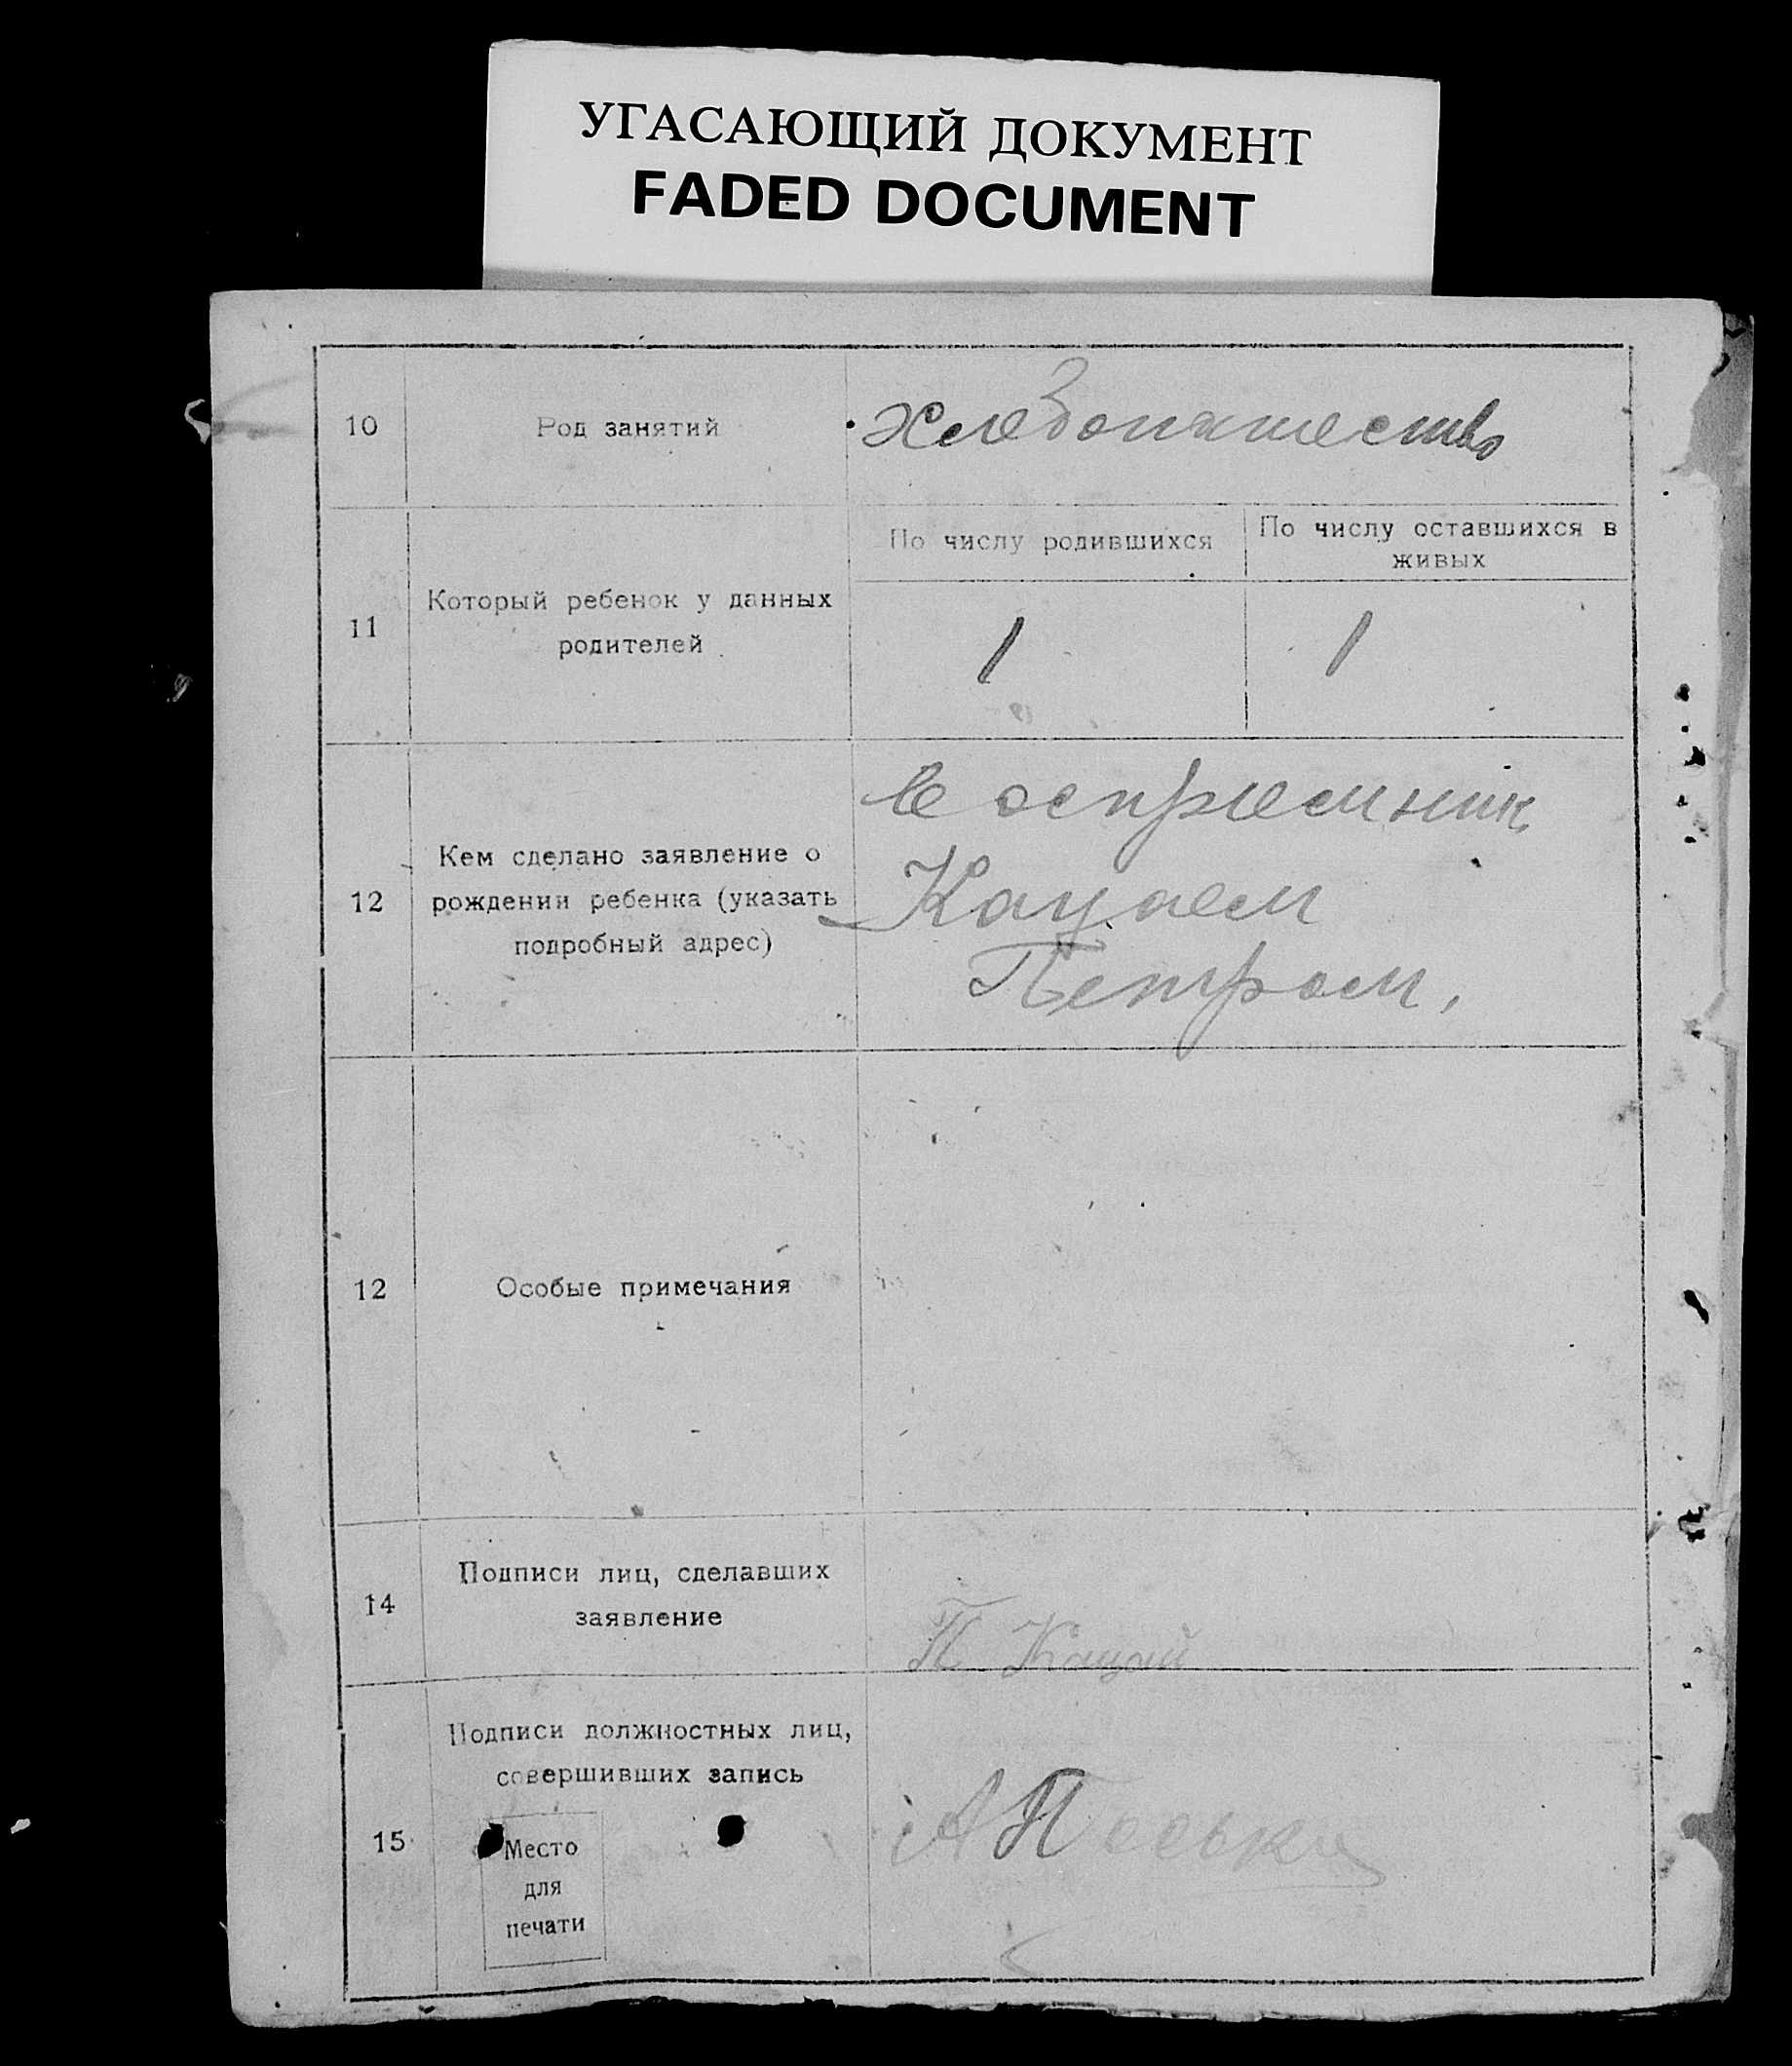 УГАСАЮЩИЙ ДОКУМЕНТ
FADED DOCUMENT
10
Род занятий
Хлебопашество
11
Который ребенок у данных
родителей
По числу родившихся
По числу оставшихся в
живых
1
1
12
Кем сделано заявление о
рождении ребенка (указать
подробный адрес)
Восприемник
Кацаем
Петром.
12
Особые примечания
14
Подписи лиц, сделавших
заявление
П Кацай
15
Подписи должностных лиц,
совершивших запись
Место
для
печати